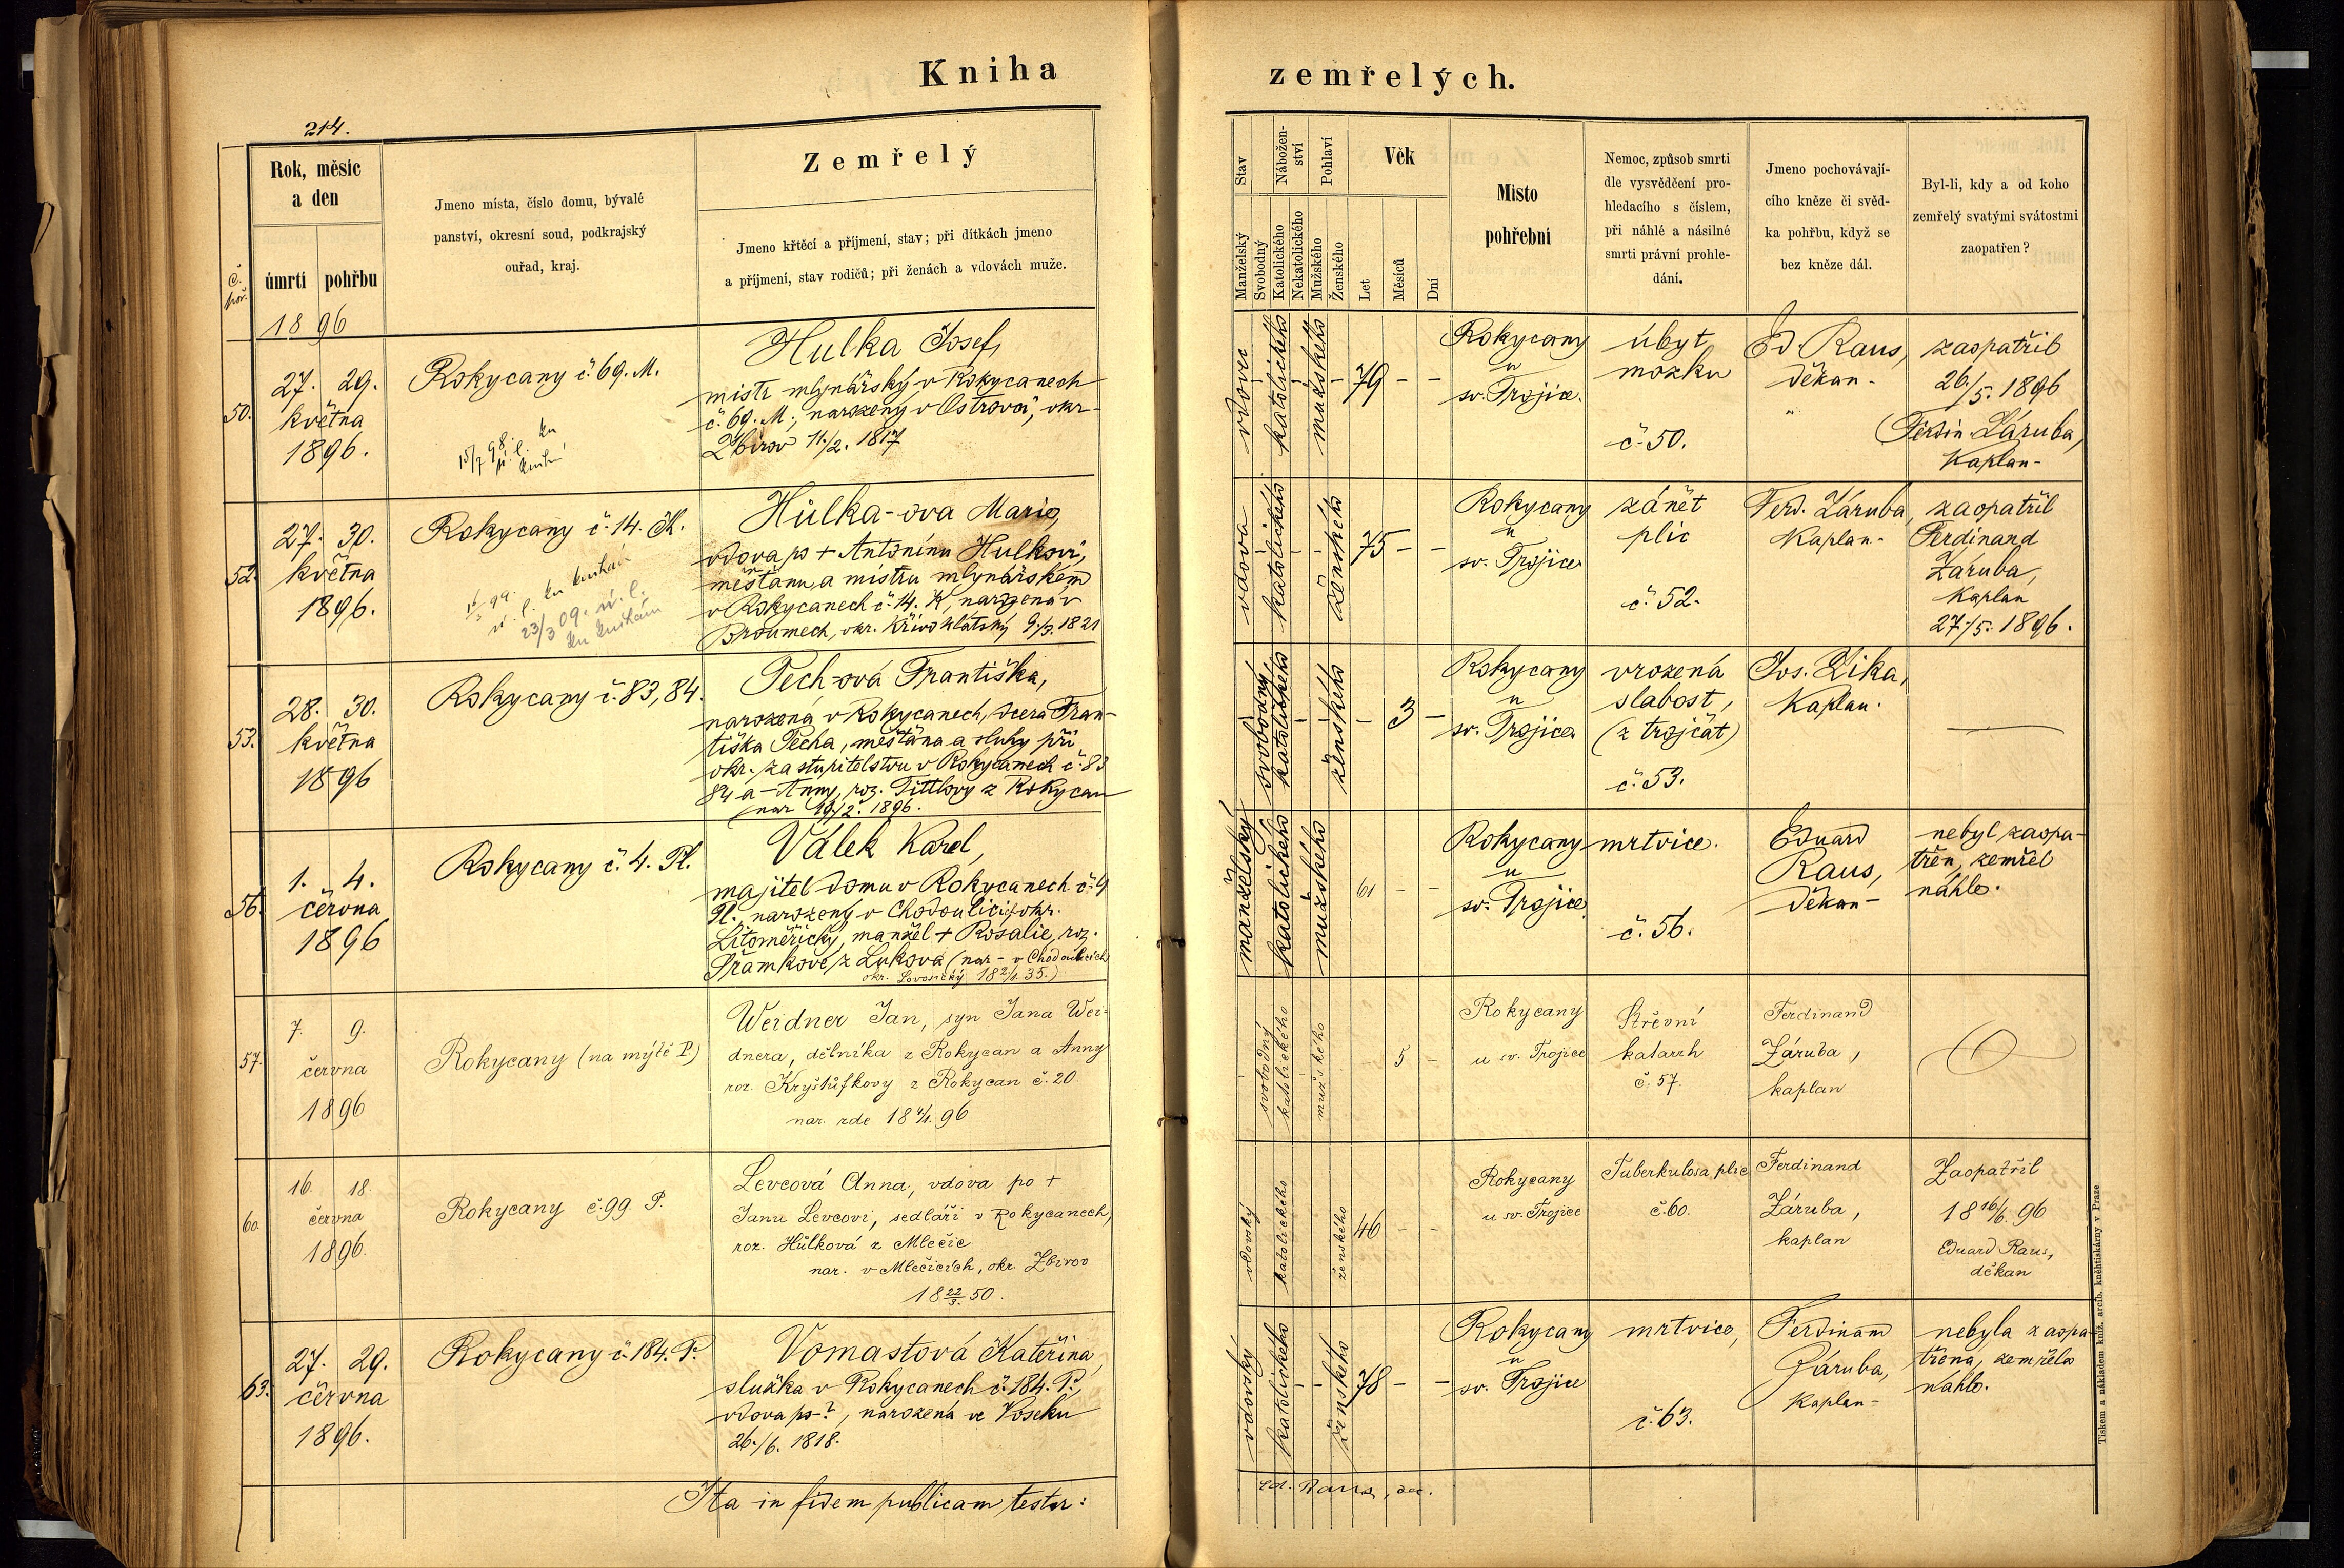 Kniha
zemřelých.
214.
Č. poř.
Rok, měsíc
a den
úmrtí
pohřbu
Jmeno místa, číslo domu, bývalé
panství, okresní soud, podkrajský
ouřad, kraj.
Zemřelý
Jmeno křtěcí a příjmení, stav; při dítkách jmeno
a příjmení, stav rodičů; při ženách a vdovách muže.
Stav
Manželský
Svobodný
Nábožen-
ství
Katolického
Nekatolického
Pohlaví
Mužského
Ženského
Věk
Let
Měsíců
Dní
Místo
pohřební
Nemoc, způsob smrti
dle vysvědčení pro-
hledacího s číslem,
při náhlé a násilné
smrti právní prohle-
dání.
Jmeno pochovávají-
cího kněze či svěd-
ka pohřbu, když se
bez kněze dál.
Byl-li, kdy a od koho
zemřelý svatými svátostmi
zaopatřen?
1896
50.
27. 29.
května
1896.
Rokycany č. 69. M.
15/7 98
Hulka Josef,
mistr mlynářský v Rokycanech
č. 69. M; narozený v Ostrově, okr.
Zbirov 11./2. 1817
vdovec
katolického
mužského
79 - -
Rokycany
u
sv. Trojice.
úbyt
mozku
č. 50.
Ed. Raus,
děkan -
zaopatřil
26./5. 1896
Ferdin. Záruba,
Kaplan -
52.
27. 30.
května
1896.
Rokycany č. 14. K.
23/3 09. ú. l.
Hůlka-ova Marie,
vdova po + Antonínu Hulkovi,
měšťanu a mistru mlynářském
v Rokycanech č. 14. K, narozená v
Broumech, okr. Křivoklátský 9./3. 1821
vdova
katolického
ženského
75 - -
Rokycany
u
sv. Trojice
zánět
plic
č. 52.
Ferd. Záruba,
Kaplan -
zaopatřil
Ferdinand
Záruba,
Kaplan
27./5. 1896.
53.
28. 30.
května
1896
Rokycany č. 83, 84.
Pech-ová Františka,
narozená v Rokycanech, dcera Fran-
tiška Pecha, měšťana a sluhy při
okr. zastupitelstvu v Rokycanech č. 83
84 a Anny, roz. Tittlovy z Rokycan
nar 19./2. 1896.
svobodný
katolického
ženského
- 3 -
Rokycany
u
sv. Trojice
vrozená
slabost,
(z trojčat)
č. 53.
Jos. Zika,
Kaplan.
56.
1. 4.
června
1896
Rokycany č. 4. Pl.
Válek Karel,
majitel domu v Rokycanech č. 4
Pl., narozený v Chodoulicích okr.
Litoměřický, manžel + Rosalie, roz.
Šrámkové z Luková (nar - v Chodoulicích
okr. Lovosický 18 2/1. 35.)
manželský
katolického
mužského
61 - -
Rokycany
u
sv. Trojice
mrtvice.
č. 56.
Eduard
Raus,
děkan -
nebyl zaopa-
třen, zemřel
náhle.
57.
7. 9.
června
1896
Rokycany (na mýtě P.)
Weidner Jan, syn Jana Wei-
dnera, dělníka z Rokycan a Anny
roz. Kryštůfkovy z Rokycan č. 20
nar. zde 18 4/1. 96
svobodný
katolického
mužského
5 -
Rokycany
u sv. Trojice
Střevní
katarrh
č. 57.
Ferdinand
Záruba,
kaplan
60.
16. 18.
června
1896.
Rokycany č. 99. P.
Levcová Anna, vdova po +
Janu Levcovi, sedláři v Rokycanech,
roz. Hůlková z Mlečic
nar. v Mlečicích, okr. Zbirov
18 22/3. 50.
vdovský
katolického
ženského
46 - -
Rokycany
u sv. Trojice
Tuberkulosa plic
č. 60.
Ferdinand
Záruba,
kaplan
Zaopatřil
18 16/6. 96
Eduard Raus,
děkan
63.
27. 29.
června
1896.
Rokycany č. 184. P.
Vomastová Kateřina,
služka v Rokycanech č. 184. P.,
vdova po - ?, narozená ve Voseku
26./6. 1818.
vdovský
katolického
ženského
78 - -
Rokycany
u
sv. Trojice
mrtvice,
č. 63.
Ferdinand
Záruba,
Kaplan -
nebyla zaopa-
třena, zemřela
náhle.
Ita in fidem publicam testor:
Ed. Raus, dec.
Tiskem a nákladem kníž. arcib. kněhtiskárny v Praze